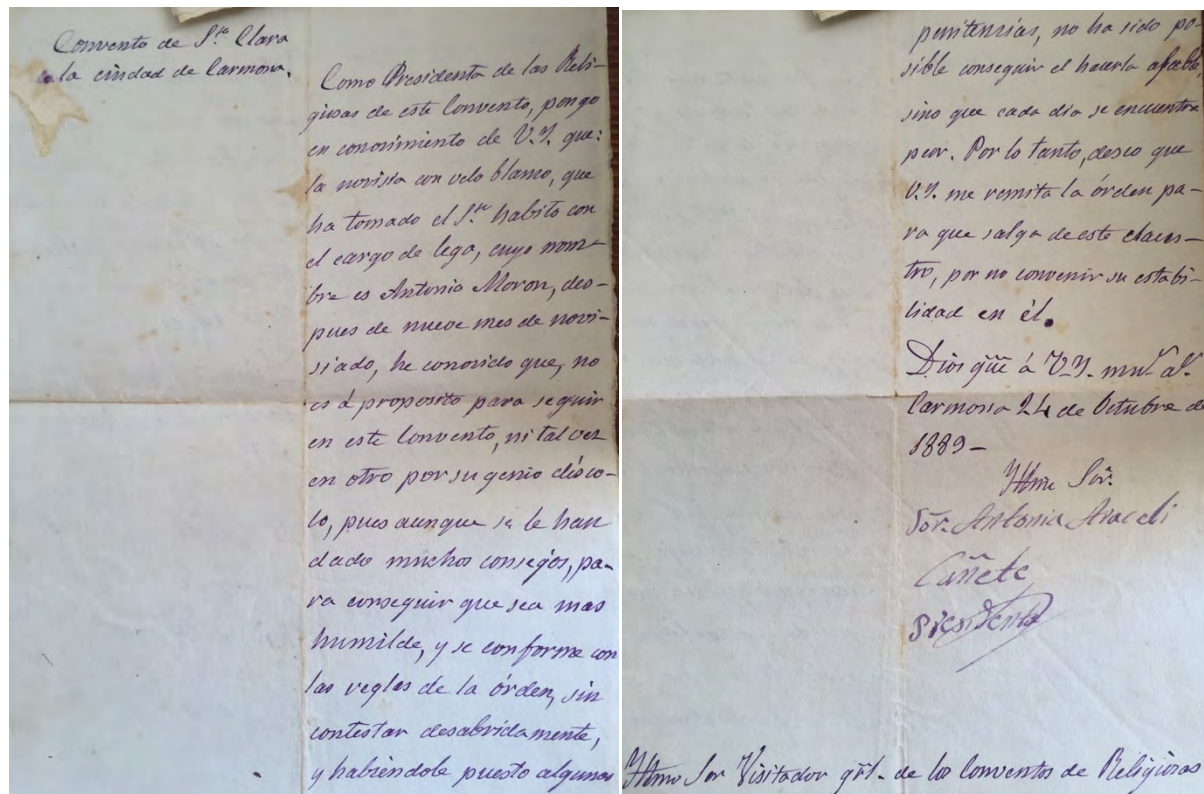 Convento de Sta. Clara
a la ciudad de Carmona.
Como Presidenta de las Reli-
giosas de este Convento, pongo
en conosimiento de V.Y. que:
la novisia con velo blanco, que
ha tomado el Sto. habito con
el cargo de lega, cuyo nom-
bre es Antonia Moron, des-
pues de nueve mes de novi-
siado, he conosido que, no
es á proposito para seguir
en este Convento, ni tal vez
en otro por su genio dísco-
lo, pues aunque se le han
dado muchos consegos, pa-
ra conseguir que sea mas
humilde, y se conforme con
las reglas de la órden, sin
contestar desabridamente,
y habiéndole puesto algunas
penitensias, no ha sido po-
sible conseguir el hacerla afable
sino que cada dia se encuentra
peor. Por lo tanto, deseo que
V.Y. me remita la órden pa-
ra que salga de este claus-
tro, por no convenir su estabi-
lidad en él.
Dios gũe á V.Y. ms. as.
Carmona 24 de Octubre de
1889-
Yltmo Sor.
Sor. Antonia Araceli
Cañete
Presidenta
Yltmo Sor Visitador grl. de los Conventos de Religiosas